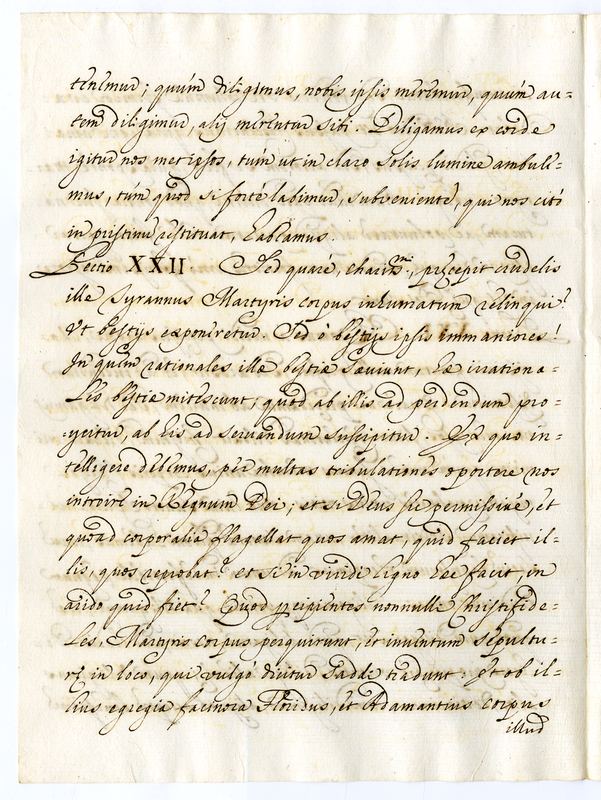 tenemur; quúm diligimus, nobis ipsis meremur, quúm au=
tem diligimur, alij merentur sibi. Diligamus ex corde
igitur nos metipsos, túm ut in claro solis lumine ambule=
mus, túm quod si forté labimur, subveniente, qui nos citò
in pristinu restituat, habeamus.
Lectio XXII. Sed quaré, chariss.mi, præcepit crudelis
ille Tyrannus Martyris corpus inhumatum relinqui?
Vt bestijs exponeretur. Sed ò bestijs ipsis immaniores!
In quem rationales illæ bestiæ sæviunt, hæ irrationa=
les bestiæ mitescunt; quod ab illis ad perdendum pro=
ijcitur, ab his ad servandum suscipitur. Ex quo in=
telligere debemus, per multas tribulationes oportere nos
introire in Regnum Dei; et si Deus sic permissivé, et
quoad corporalia flagellat quos amat, quid faciet il=
lis, quos reprobat? et si in viridi ligno hec facit, in
arido quid fiet? Quod pcipientes nonnulli Christifide=
les, Martyris corpus perquirunt, et inventum sepultu=
ræ in loco, qui vulgó dicitur Taddi tradunt: et ob il=
lius egregia facinora Floridus, et Adamantius corpus
illud